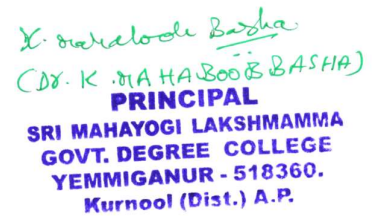 K. Mahaboob Basha
(Dr. K. MAHABOOB BASHA)
PRINCIPAL
SRI MAHAYOGI LAKSHMAMMA
GOVT. DEGREE COLLEGE
YEMMIGANUR - 518360.
Kurnool (Dist.) A.P.